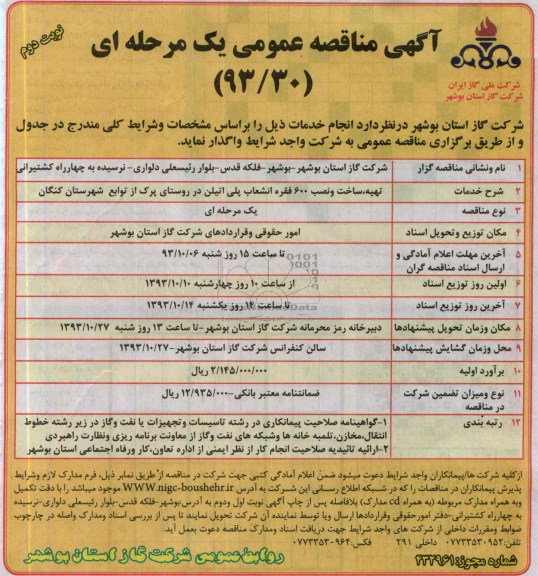 نوبت دوم
آگهی مناقصه عمومی یک مرحله ای
(۹۳/۳۰)
شرکت ملی گاز ایران
شرکت گاز استان بوشهر
شرکت گاز استان بوشهر درنظردارد انجام خدمات ذیل را براساس مشخصات وشرایط کلی مندرج در جدول
و از طریق برگزاری مناقصه عمومی به شرکت واجد شرایط واگذار نماید.
۱ نام ونشانی مناقصه گزار شرکت گاز استان بوشهر-بوشهر-فلکه قدس-بلوار رئیسعلی دلواری- نرسیده به چهارراه کشتیرانی
۲ شرح خدمات تهیه،ساخت ونصب ۶۰۰ فقره انشعاب پلی اتیلن در روستای پرک از توابع شهرستان کنگان
۳ نوع مناقصه یک مرحله ای
۴ مکان توزیع وتحویل اسناد امور حقوقی وقراردادهای شرکت گاز استان بوشهر
۵ آخرین مهلت اعلام آمادگی و ارسال اسناد مناقصه گران تا ساعت ۱۵ روز شنبه ۹۳/۱۰/۰۶
۶ اولین روز توزیع اسناد از ساعت ۱۰ روز چهارشنبه ۱۳۹۳/۱۰/۱۰
۷ آخرین روز توزیع اسناد تا ساعت ۱۴ روز یکشنبه ۱۳۹۳/۱۰/۱۴
۸ مکان وزمان تحویل پیشنهادها دبیرخانه رمز محرمانه شرکت گاز استان بوشهر-تا ساعت ۱۳ روز شنبه ۱۳۹۳/۱۰/۲۷
۹ محل وزمان گشایش پیشنهادها سالن کنفرانس شرکت گاز استان بوشهر-۱۳۹۳/۱۰/۲۷
۱۰ برآورد اولیه ۲/۱۴۵/۰۰۰/۰۰۰ ریال
۱۱ نوع ومیزان تضمین شرکت در مناقصه ضمانتنامه معتبر بانکی-۱۲/۹۳۵/۰۰۰ ریال
۱۲ رتبه بندی ۱-گواهینامه صلاحیت پیمانکاری در رشته تاسیسات وتجهیزات یا نفت وگاز در زیر رشته خطوط
انتقال،مخازن،تلمبه خانه ها وشبکه های نفت وگاز از معاونت برنامه ریزی ونظارت راهبردی
۲-ارائه تائیدیه صلاحیت انجام کار از نظر ایمنی از اداره تعاون،کار ورفاه اجتماعی استان بوشهر
ازکلیه شرکت ها/پیمانکاران واجد شرایط دعوت میشود ضمن اعلام آمادگی کتبی جهت شرکت در مناقصه از طریق نمابر ذیل، فرم مدارک لازم وشرایط
پذیرش پیمانکاران در مناقصات را که در شبکه اطلاع رسانی این شرکت به آدرس WWW.nigc-boushehr.ir موجود میباشد را با دقت تکمیل
وبه همراه مدارک مربوطه (به همراه cd مدارک) بلافاصله پس از چاپ آگهی نوبت اول ودوم به آدرس:بوشهر-فلکه قدس-بلوار رئیسعلی دلواری-نرسیده
به چهارراه کشتیرانی-دفتر امورحقوقی وقراردادها ارسال ویا توسط نماینده آن شرکت تحویل نمایند تا پس از بررسی اسناد ومدارک واصله در چارچوب
ضوابط ومقررات داخلی از شرکت های واجد شرایط جهت دریافت اسناد ومدارک مناقصه دعوت بعمل آید.
تلفن:۰۷۷۳۳۵۳۰۹۵۲ داخلی ۲۹۱ فکس:۰۷۷۳۳۵۳۰۹۶۴
شماره مجوز:۴۳۳۹۶۱
روابط عمومی شرکت گاز استان بوشهر